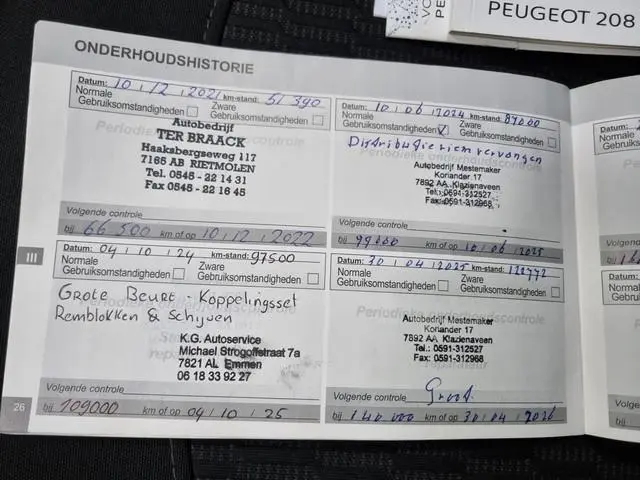 PEUGEOT 208
ONDERHOUDSHISTORIE
Datum: 10 / 12 / 2021 km-stand: 51 390
Normale Gebruiksomstandigheden
Zware Gebruiksomstandigheden
Autobedrijf
TER BRAACK
Haaksbergseweg 117
7165 AB RIETMOLEN
Tel. 0545 - 22 14 31
Fax 0545 - 22 16 45
Volgende controle
bij 66 500 km of op 10 / 12 / 2022
Datum: 10 / 06 / 2024 km-stand: 87000
Normale Gebruiksomstandigheden
Zware Gebruiksomstandigheden
Distributieriem vervangen
Autobedrijf Mestemaker
Koriander 17
7892 AA Klazienaveen
Tel.: 0591-312527
Fax: 0591-312968
Volgende controle
bij 99000 km of op 10 / 06 / 2025
III
Datum: 04 / 10 / 24 km-stand: 97500
Normale Gebruiksomstandigheden
Zware Gebruiksomstandigheden
Grote Beurt - Koppelingsset
Remblokken & Schijven
K.G. Autoservice
Michael Strogoffstraat 7a
7821 AL Emmen
06 18 33 92 27
Volgende controle
bij 109000 km of op 04 / 10 / 25
Datum: 30 / 04 / 2025 km-stand:
Normale Gebruiksomstandigheden
Zware Gebruiksomstandigheden
Autobedrijf Mestemaker
Koriander 17
7892 AA Klazienaveen
Tel.: 0591-312527
Fax: 0591-312968
Volgende controle
Groot
bij 140 000 km of op 30 / 04 / 2026
26